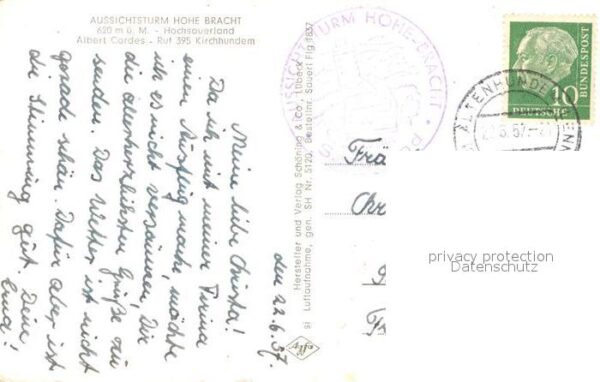 AUSSICHTSTURM HOHE BRACHT
620 m ü. M. - Hochsauerland
Albert Cordes - Ruf 395 Kirchhundem
den 22.6.57.
Meine liebe Christa!
Da ich mit meiner Firma
einen Ausflug mache, möchte
ich es nicht versäumen Dir
die allerherzlichsten Grüße zu
senden. Das Wetter ist nicht
gerade schön. Dafür aber ist
die Stimmung gut. Deine
Erna!
Hersteller und Verlag Schöning & Co., Lübeck
si Luftaufnahme, gen. SH Nr. 5120, Bestellnr. Sauerl Flg 1837
AUSSICHTSTURM HOHE-BRACHT
DEUTSCHE BUNDESPOST
10
ALTENHUNDEM
Frä
Chr
privacy protection
Datenschutz